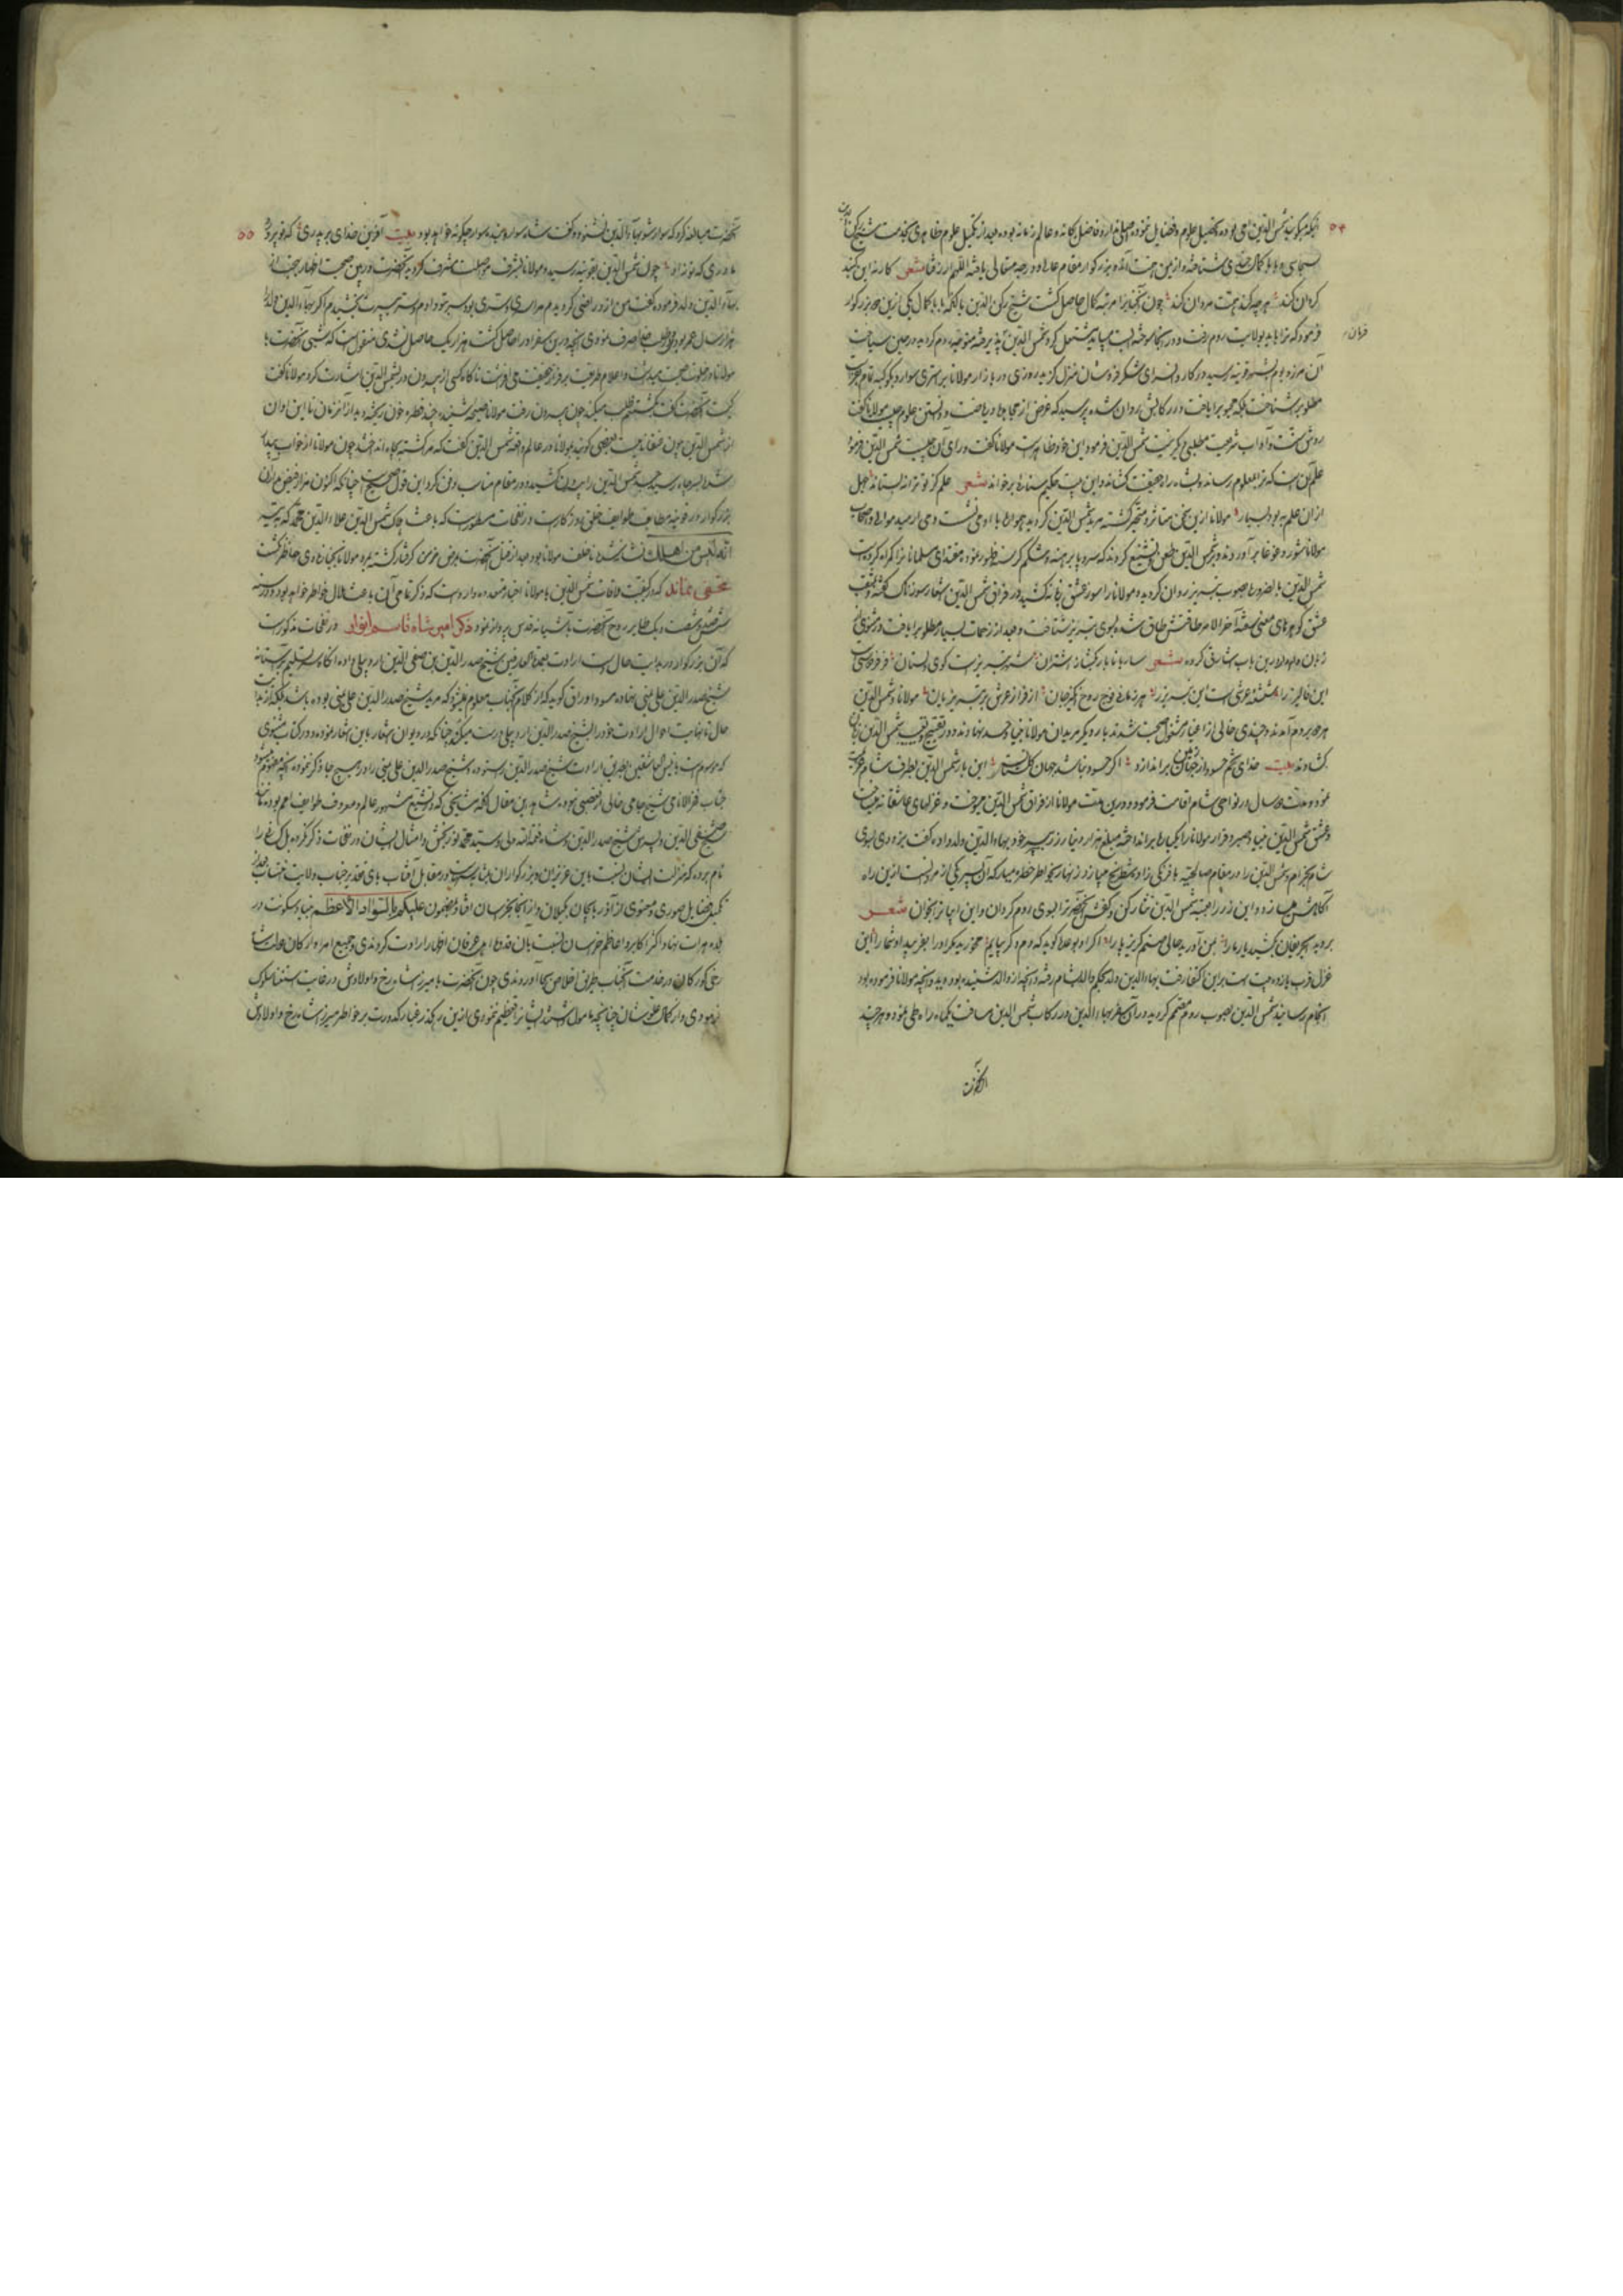 ۵۴
آنکه میگوید شمس الدین امی بوده تحصیل علوم و فضایل ننموده اصلی ندارد فاضل یگانه و عالم زمانه بوده و بعد از تکمیل علوم ظاهری بخدمت شیخ رکن الدین
سجاسی و بابا کمال جندی شتافته و از یمن همت آن دو بزرگوار مقام عالی و درجه متعالی یافته اللهم ارزقنا شعر کار نه این گنبد
گردان کند هرچه کند همت مردان کند چون آنجناب را مرتبه کمال حاصل گشت شیخ رکن الدین یا آنکه بابا کمال یکی ازین دو بزرگوار
فرمود که ترا باید بولایت روم رفت و در آنجا سوخته ایست میباید مشتعل کرد شمس الدین پذیرفته متوجه روم گردید و در حین سیاحت
آن مرز و بوم بشهر قونیه رسید در کاروانسرای شکرفروشان منزل گزید روزی در بازار مولانا بر استری سوار دید که با کوکبه تمام
مطلوبرا شناخت بلکه محبوبرا یافت و در رکابش روان شده پرسید که غرض از مجاهده و ریاضت و دانستن علوم چیست مولانا گفت
روش سنت و آداب شریعت مطلبی دیگر نیست شمس الدین فرمود این خود ظاهرست مولانا گفت ورای آن چیست شمس الدین فرمود
علم آن است که ترا بمعلوم رساند و بشاه راه حقیقت کشاند و این بیت حکیم سنائی برخواند شعر علم کز تو ترا نه بستاند جهل
از آن علم به بود بسیار مولانا ازین سخن متأثر و متحیر گشته مرید شمس الدین گردید
مولانا شور و غوغا برآوردند و بر شمس الدین طعن و تشنیع کردند که سر و پا برهنه و شکم گرسنه ظهور نموده مقتدای مسلمانانرا گمراه کرده است
شمس الدین بالضروره بصوب تبریز روان گردید و مولانا را سوز عشق زبانه کشید در فراق شمس الدین اشعار سوزناک گفته و بمثقب
عشق گوهرهای معنی سفته آخر الامر طاقتش طاق شده بسوی تبریز شتافت و بعد از زحمات بسیار مطلوبرا یافت و در مثنوی نیز
زبان در این باب اشارتی کرده شعر ساربانا بار بگشا ز اشتران شهر تبریز است و کوی دلستان فر فردوسی است
این پالیز را شعشعه عرشی است این تبریز را هر زمانی فوج روح انگیز جان از فراز عرش بر تبریزیان مولانا و شمس الدین
هر دو بروم آمدند و چندی خالی از اغیار مشغول صحبت شدند بار دیگر مریدان مولانا بنیاد حسد نهادند و در تقبیح و تعییب شمس الدین زبان
گشادند بیت خدای چشم حسود از جهان براندازد اگر حسود نباشد جهان گلستانست این بار شمس الدین بطرف شام
نمود و مدت دو سال در نواحی شام اقامت فرمود و درین مدت مولانا از فراق شمس الدین میسوخت و غزلهای عاشقانه میساخت
و عشق شمس الدین بنیاد صبر و قرار مولانا را یکبارگی برانداخته مبلغ هزار دینار زر بپسر خود بهاء الدین ولد داده گفت برو زودی بسوی
شام بخرام و شمس الدین را در مقام صالحیه با فرنگی زاده شطرنج میبازد زنهار بخاطر خطره میار که آن پسر یکی از مردانست ازین راه
آگاهش میسازد و این زر را بجهة شمس الدین نثار کن و کفش آنحضرت را بسوی روم گردان و این ابیات برخوان شعر
بروید ای حریفان بکشید یار ما را بمن آورید حالی صنم گریزپا را اگر او بوعده گوید که دم دگر بیایم مخورید مکر او را بفریبد او شما را این
غزل قرب یازده بیت است بر این ناکفا رفت بهاء الدین ولد بحکم والد بشام رفته و آنچه از والد شنیده بود دید و آنچه مولانا فرموده بود
انجام رسانید شمس الدین بصوب روم مصمم گردید و در آن سفر بهاء الدین در رکاب شمس الدین مسافت یکماهه راه طی نمود و هرچند
آنحضرت
۵۵
آنحضرت مبالغه کرد که سوار شو بهاء الدین نشنود و گفت شاه سوار و بنده سوار چگونه خواهد بود بیت آفرین خدای بر پدری که تو پرورد
مادری که تو زاد چون شمس الدین بقونیه رسید و مولانا بشرف مواصلت مشرف گردید آنحضرت در بین صحبت اظهار بهجت از
بهاء الدین ولد فرموده گفت من از او راضی گردیدم مرا سری و سری بود سر بتو دادم و سر بپسرت بخشیدم اگر بهاء الدین ولد را
هزار سال عمر بودی و در طلب خدا صرف نمودی آنچه درین سفر او را حاصل گشت هزار یک حاصل نشدی منقول است که شبی آنحضرت با
مولانا در خلوت صحبت میداشت و اعلام طریقت بر فراز حقیقت می افراشت ناگاه کسی از بیرون در شمس الدین را اشارت کرد مولانا گفت
کیست آنحضرت گفت بکشتنم طلب میکنند چون بیرون رفت مولانا صیحه شنید و چند قطره خون ریخته دید از آن زمان تا این اوان
از شمس الدین چون عنقا نامیست بعضی گویند مولانا در عالم واقعه شمس الدین گفت که مرا کشته بچاه انداختند چون مولانا از خواب بیدار
شد بسر چاه رسید جسد شمس الدین را بیرون کشیده و در مقام مناسب دفن کرد این قول صحیح است چنانکه اکنون مزار فیض مدار آن
بزرگوار در قونیه مطاف طوایف خلق روزگارست در نفحات مسطورست که باعث هلاک شمس الدین علاء الدین محمد که به تیر
انه لیس من اهلک نشانه شده ناخلف مولانا بود بعد از قتل آنحضرت بمرض مزمن گرفتار گشته بمرد مولانا بجنازه وی حاضر نگشت
مخفی نماند که در کیفیت ملاقات شمس الدین با مولانا اخبار متعدده وارد است که ذکر تمامی آن باعث ملال خاطر خواهد بود و در سنه
ششصد و شصت و یک طایر روح آنحضرت بآشیانه قدس پرواز نمود ذکر امیر شاه قاسم انوار در نفحات مذکورست
که آن بزرگوار در بدایت حال دست ارادت بقدوة العارفین شیخ صدر الدین بن صفی الدین اردبیلی داده آنگاه سر تسلیم بر آستانه
شیخ صدر الدین علی یمنی نهاده مسود اوراق گوید که از کلام آنجناب معلوم نمیشود که مرید شیخ صدر الدین علی یمنی بوده باشد بلکه از بدایت
حال تا نهایت احوال ارادت خود را بشیخ صدر الدین اردبیلی درست میکند چنانکه در دیوان اشعار باین اشعار نموده و در کتاب مثنوی
که موسوم است بانیس العاشقین اظهار ارادت شیخ صدر الدین رسنوده و شیخ صدر الدین علی یمنی را در هیچ جا ذکر ننموده
جناب فخر الانامی شیخ جامی خالی از تعصبی نبود و شاهد این مقال آنکه مشایخی که در تشیع مشهور عالم و معروف طوایف امم بوده مانند
شیخ صفی الدین و پسرش شیخ صدر الدین و شاه نعمة الله ولی و سید محمد نوربخش و امثال ایشان در نفحات ذکر نکرده بل کسانی را
نام برده که منزلت ایشان نسبت باین عزیزان و بزرگواران در مقابل آفتاب
تکمیل فضایل صوری و معنوی از آذربایجان بگیلان و از آنجا بخراسان افتاده بمضمون علیکم بالسواد الاعظم بنیاد سکونت در
بلده هرات نهاد اکثر اکابر و اعاظم خراسان نسبت بآن قدوه اهل عرفان اظهار ارادت کردندی و جمیع امرا و ارکان دولت شاه
رخی گورکان در خدمت آنجناب طریق اخلاص بجا آوردندی چون آنحضرت با میرزا شاه رخ و اولادش در غایت استغنا سلوک
فرمودی و از کمال علو شان چنانچه مامول ایشان بود ایشان را تعظیم ننمودی ازین رهگذر غبار کدورت بر خاطر میرزا شاه رخ و اولادش